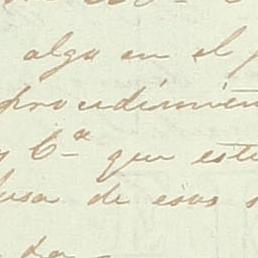 algo en el p
procedimien
y Cª que este
usa de esos s